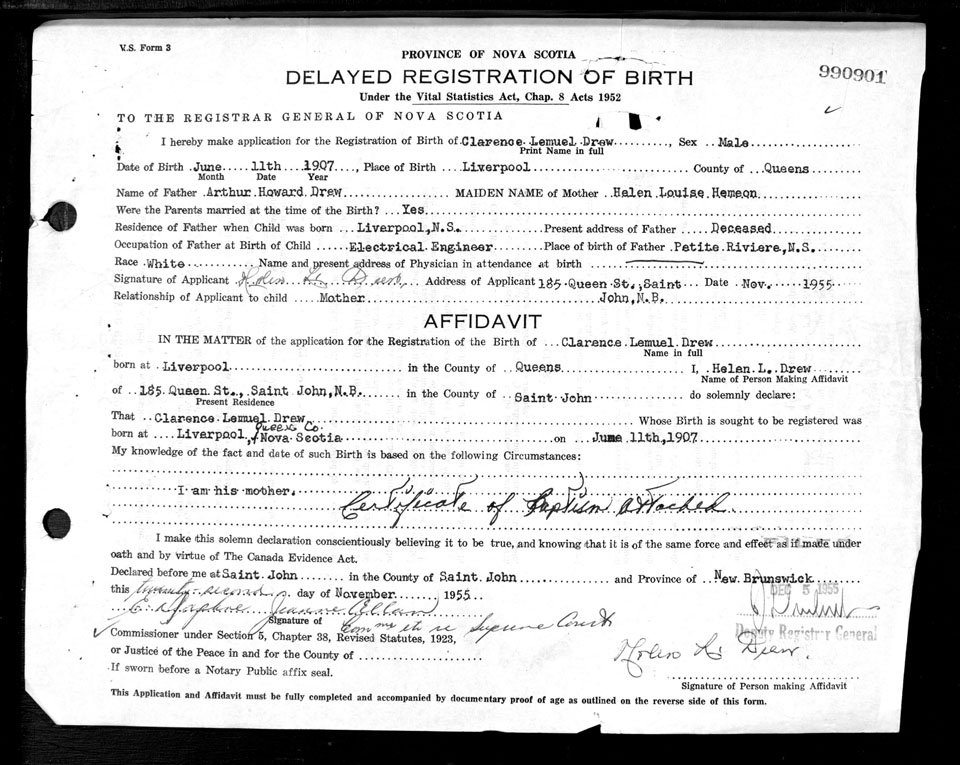 V.S. Form 3
PROVINCE OF NOVA SCOTIA
DELAYED REGISTRATION OF BIRTH
990901
Under the Vital Statistics Act, Chap. 8 Acts 1952
TO THE REGISTRAR GENERAL OF NOVA SCOTIA
I hereby make application for the Registration of Birth of Clarence Lemuel Drew, Sex Male
Print Name in full
Date of Birth June 11th 1907, Place of Birth Liverpool County of Queens
Month Date Year
Name of Father Arthur Howard Drew MAIDEN NAME of Mother Helen Louise Hemeon
Were the Parents married at the time of the Birth? Yes
Residence of Father when Child was born Liverpool, N.S. Present address of Father Deceased
Occupation of Father at Birth of Child Electrical Engineer Place of birth of Father Petite Riviere, N.S.
Race White Name and present address of Physician in attendance at birth
Signature of Applicant Helen L. Drew Address of Applicant 185 Queen St., Saint Date Nov. 1955
Relationship of Applicant to child Mother John, N.B.
AFFIDAVIT
IN THE MATTER of the application for the Registration of the Birth of Clarence Lemuel Drew
Name in full
born at Liverpool in the County of Queens I, Helen L. Drew
Name of Person Making Affidavit
of 185 Queen St., Saint John, N.B. in the County of Saint John do solemnly declare:
Present Residence
That Clarence Lemuel Drew Whose Birth is sought to be registered was
Queens Co.
born at Liverpool, Nova Scotia on June 11th, 1907
My knowledge of the fact and date of such Birth is based on the following Circumstances:
I am his mother.
Certificate of Baptism attached
I make this solemn declaration conscientiously believing it to be true, and knowing that it is of the same force and effect as if made under
oath and by virtue of The Canada Evidence Act.
Declared before me at Saint John in the County of Saint John and Province of New Brunswick
this twenty-second day of November 1955
DEC 5 1955
Signature of
Supreme Court
Deputy Registrar General
Commissioner under Section 5, Chapter 38, Revised Statutes, 1923,
or Justice of the Peace in and for the County of
Helen L. Drew
If sworn before a Notary Public affix seal.
Signature of Person making Affidavit
This Application and Affidavit must be fully completed and accompanied by documentary proof of age as outlined on the reverse side of this form.